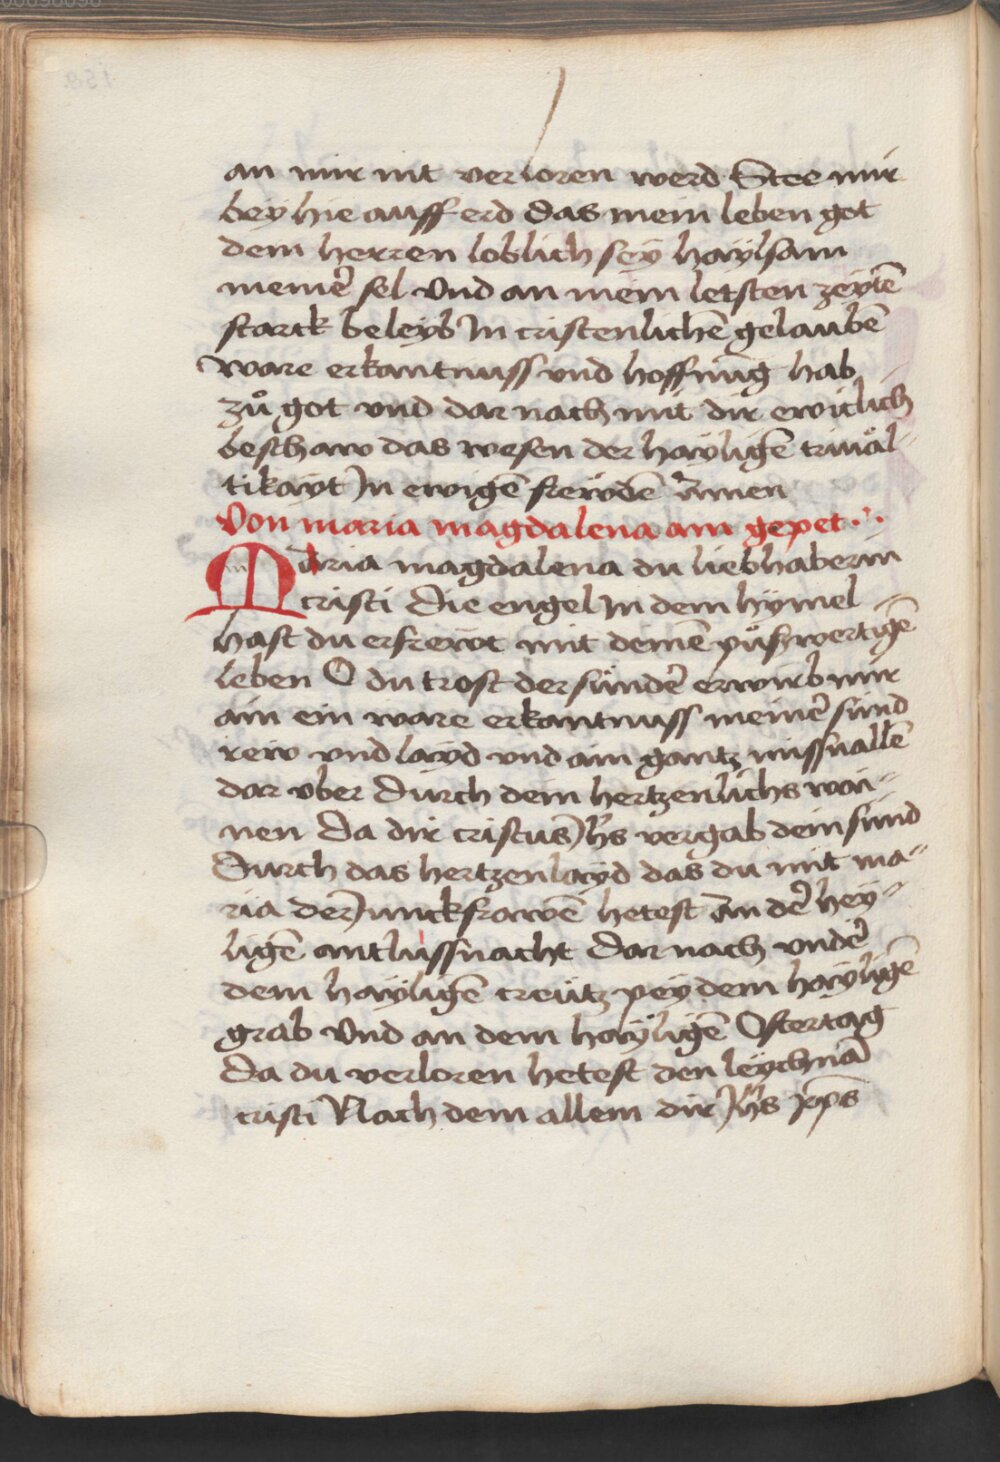 an mir nit verloren werd Stee mir
bey hie auff erd das mein leben got
dem herren loblich sey haylsam
meiner̃ sel Vnd an meim letsten zeytē
starck beleyb In cristenlichē gelaubē
ware erkantnuss vnd hoffnūg hab
zů got vnd dar nach mit dir ewiclich
beschaw das wesen der hayligē triuäl⸗
tikayt In ewigē frewdē Amen
Von maria magdalena ain gepet
Maria magdalena du liebhaberin
cristi Die engel In dem hymel
hast du erfrewt mit deinē půßwertigē
leben O du trost der sünder̃ erwirb mir
ain ein ware erkantnuss meiner̃ sünd
rew vnd layd vnd ain gantz missuallē
dar vber Durch dein hertzenlichs wai⸗
nen Da dir cristus Ihs vergab dein sünd
Durch das hertzenlayd das du mit ma⸗
ria der Iunckfrawē hetest An der̃ hey⸗
ligē antlussnacht Dar nach vnder̃
dem hayligē creütz pey dem hayligē
grab Vnd an dem hayligē Ostertag
Da du verloren hetest den leychnā
cristi Nach dem allem dir Ihs xp̄s